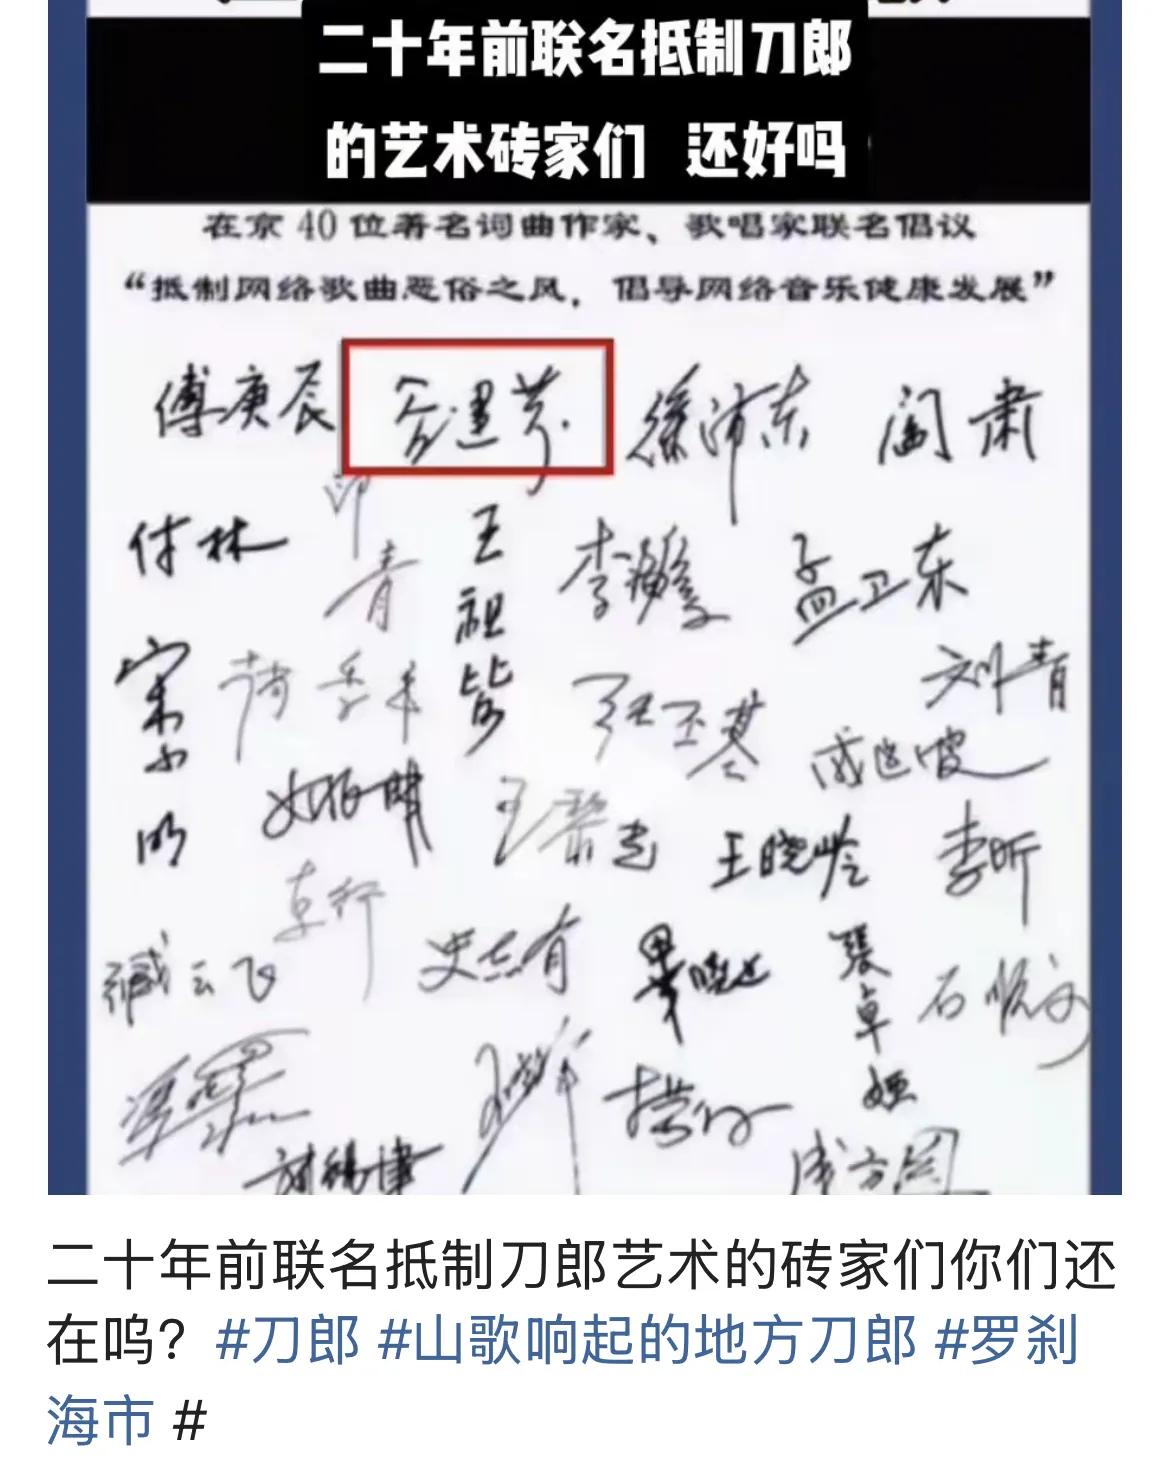 二十年前联名抵制刀郎
的艺术砖家们 还好吗
在京 40 位著名词曲作家、歌唱家联名倡议
“抵制网络歌曲恶俗之风，倡导网络音乐健康发展”
傅庚辰 谷建芬 徐沛东 阎肃
付林 印青 王祖皆 李海鹰 孟卫东
宋小明 刘青
王黎光 王晓岭 李昕
臧云飞 史志有 张卓娅 石顺义
成方圆
二十年前联名抵制刀郎艺术的砖家们你们还
在呜？#刀郎 #山歌响起的地方刀郎 #罗刹
海市 #